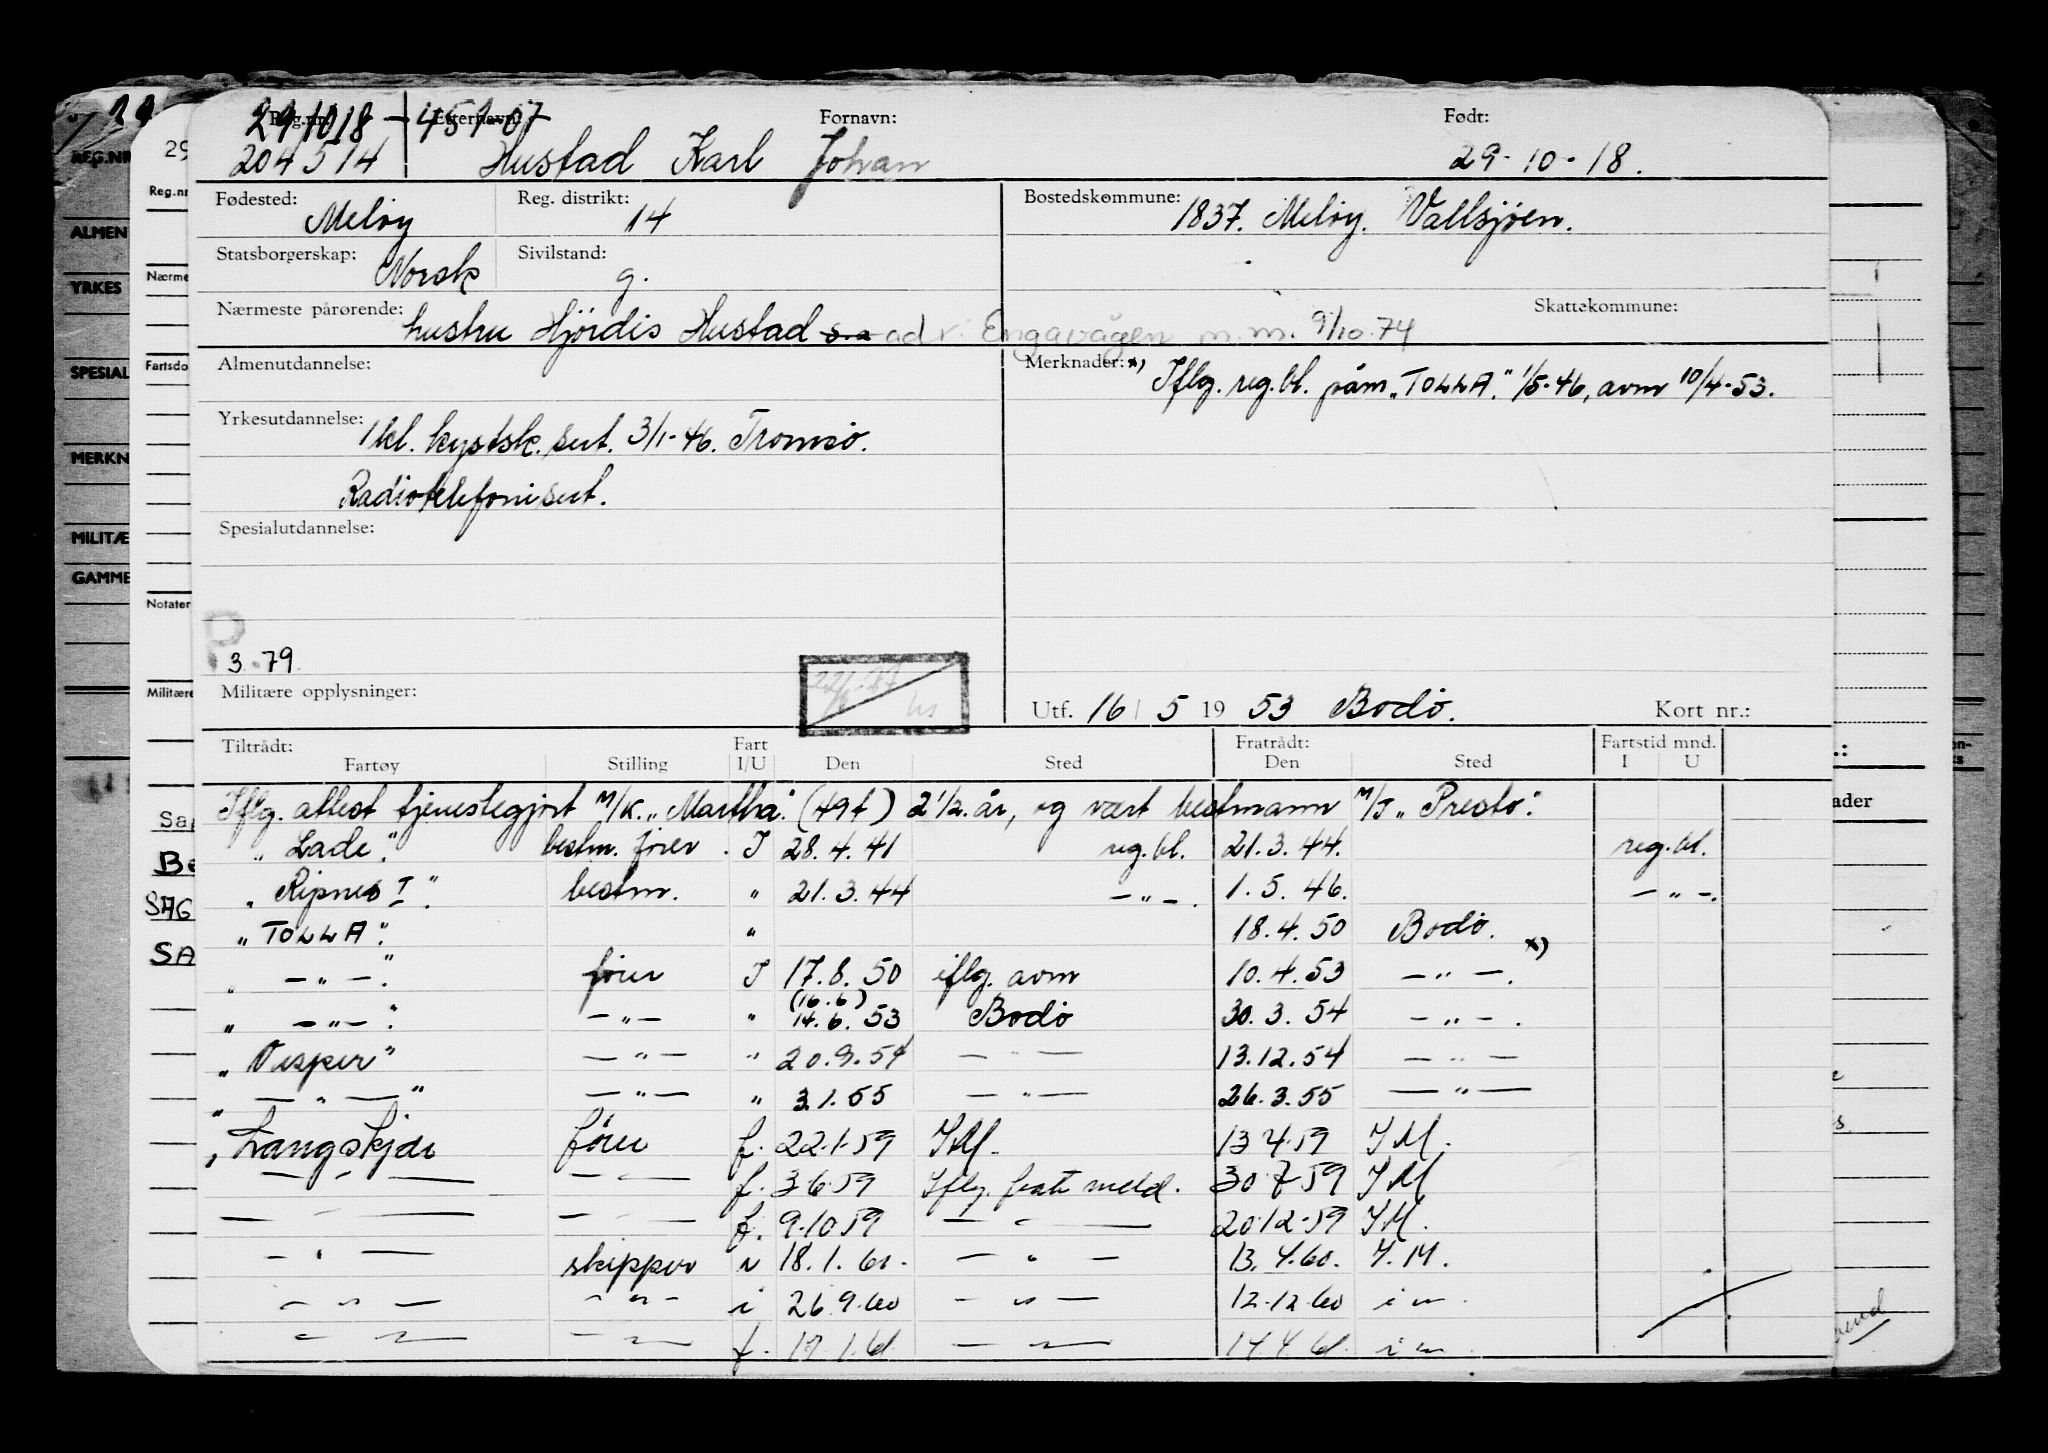 291018-45107
Reg.nr. Etternavn: Fornavn: Født:
204514 Hustad Karl Johan 29-10-18.
Fødested: Meløy Reg. distrikt: 14 Bostedskommune: 1837. Meløy. Vallsjøen.
Statsborgerskap: Norsk Sivilstand: g.
Nærmeste pårørende: hustru Hjørdis Hustad s.a adr: Engavågen m.m. 9/10.74 Skattekommune:
Almenutdannelse: Merknader: x) Iflg. reg.bl. påm. "TOLLA" 1/5-46, avm 10/4-53.
Yrkesutdannelse: 1 kl. kystsk. sert. 3/1-46. Tromsø.
Radiotelefonisert.
Spesialutdannelse:
P
3.79
Militære opplysninger: Utf. 16/5 1953 Bodø. Kort nr.:
Tiltrådt: Fart Fratrådt: Fartstid mnd.
Fartøy Stilling I/U Den Sted Den Sted I U
Iflg. attest tjenestegjort M/K. "Martha". (49t) 2 1/2 år, og vært bestmann M/J "Presto".
" Lade". bestm. fører. I 28.4.41 reg.bl. 21.3.44. reg.bl.
" Ripnes I". bestm. " 21.3.44 -"-. 1.5.46. -"-.
" TOLLA". " 18.4.50 Bodø.
" -"-." fører I 17.8.50 iflg. avm 10.4.53 -"-. x)
(16.6)
" -"-". -"- " 14.6.53 Bodø 30.3.54 -"-.
" Vesper" -"- " 20.9.54 -"- 13.12.54 -"-
" -"-" -"- " 3.1.55 -"- 26.3.55 -"-
" Langskjær fører f. 22.1.59 IM. 13.4.59 IM.
-"- -"- f. 3.6.59 Iflg. fratr meld. 30.7.59 IM
-"- -"- f. 9.10.59 -"- 20.12.59 IM.
-"- skipper i 18.1.60. -"- 13.4.60. I.M.
-"- -"- i 26.9.60 -"- 12.12.60 i m.
-"- -"- f. 17.1.61 -"- 14.4.61 i m.
REG.NR
ALMEN
YRKES
SPESIAL
MERKN
MILITÆ
GAMME
29
Reg.nr
Nærme
Fartsdo
Notater
Militære
Be
SAG
SA
ader